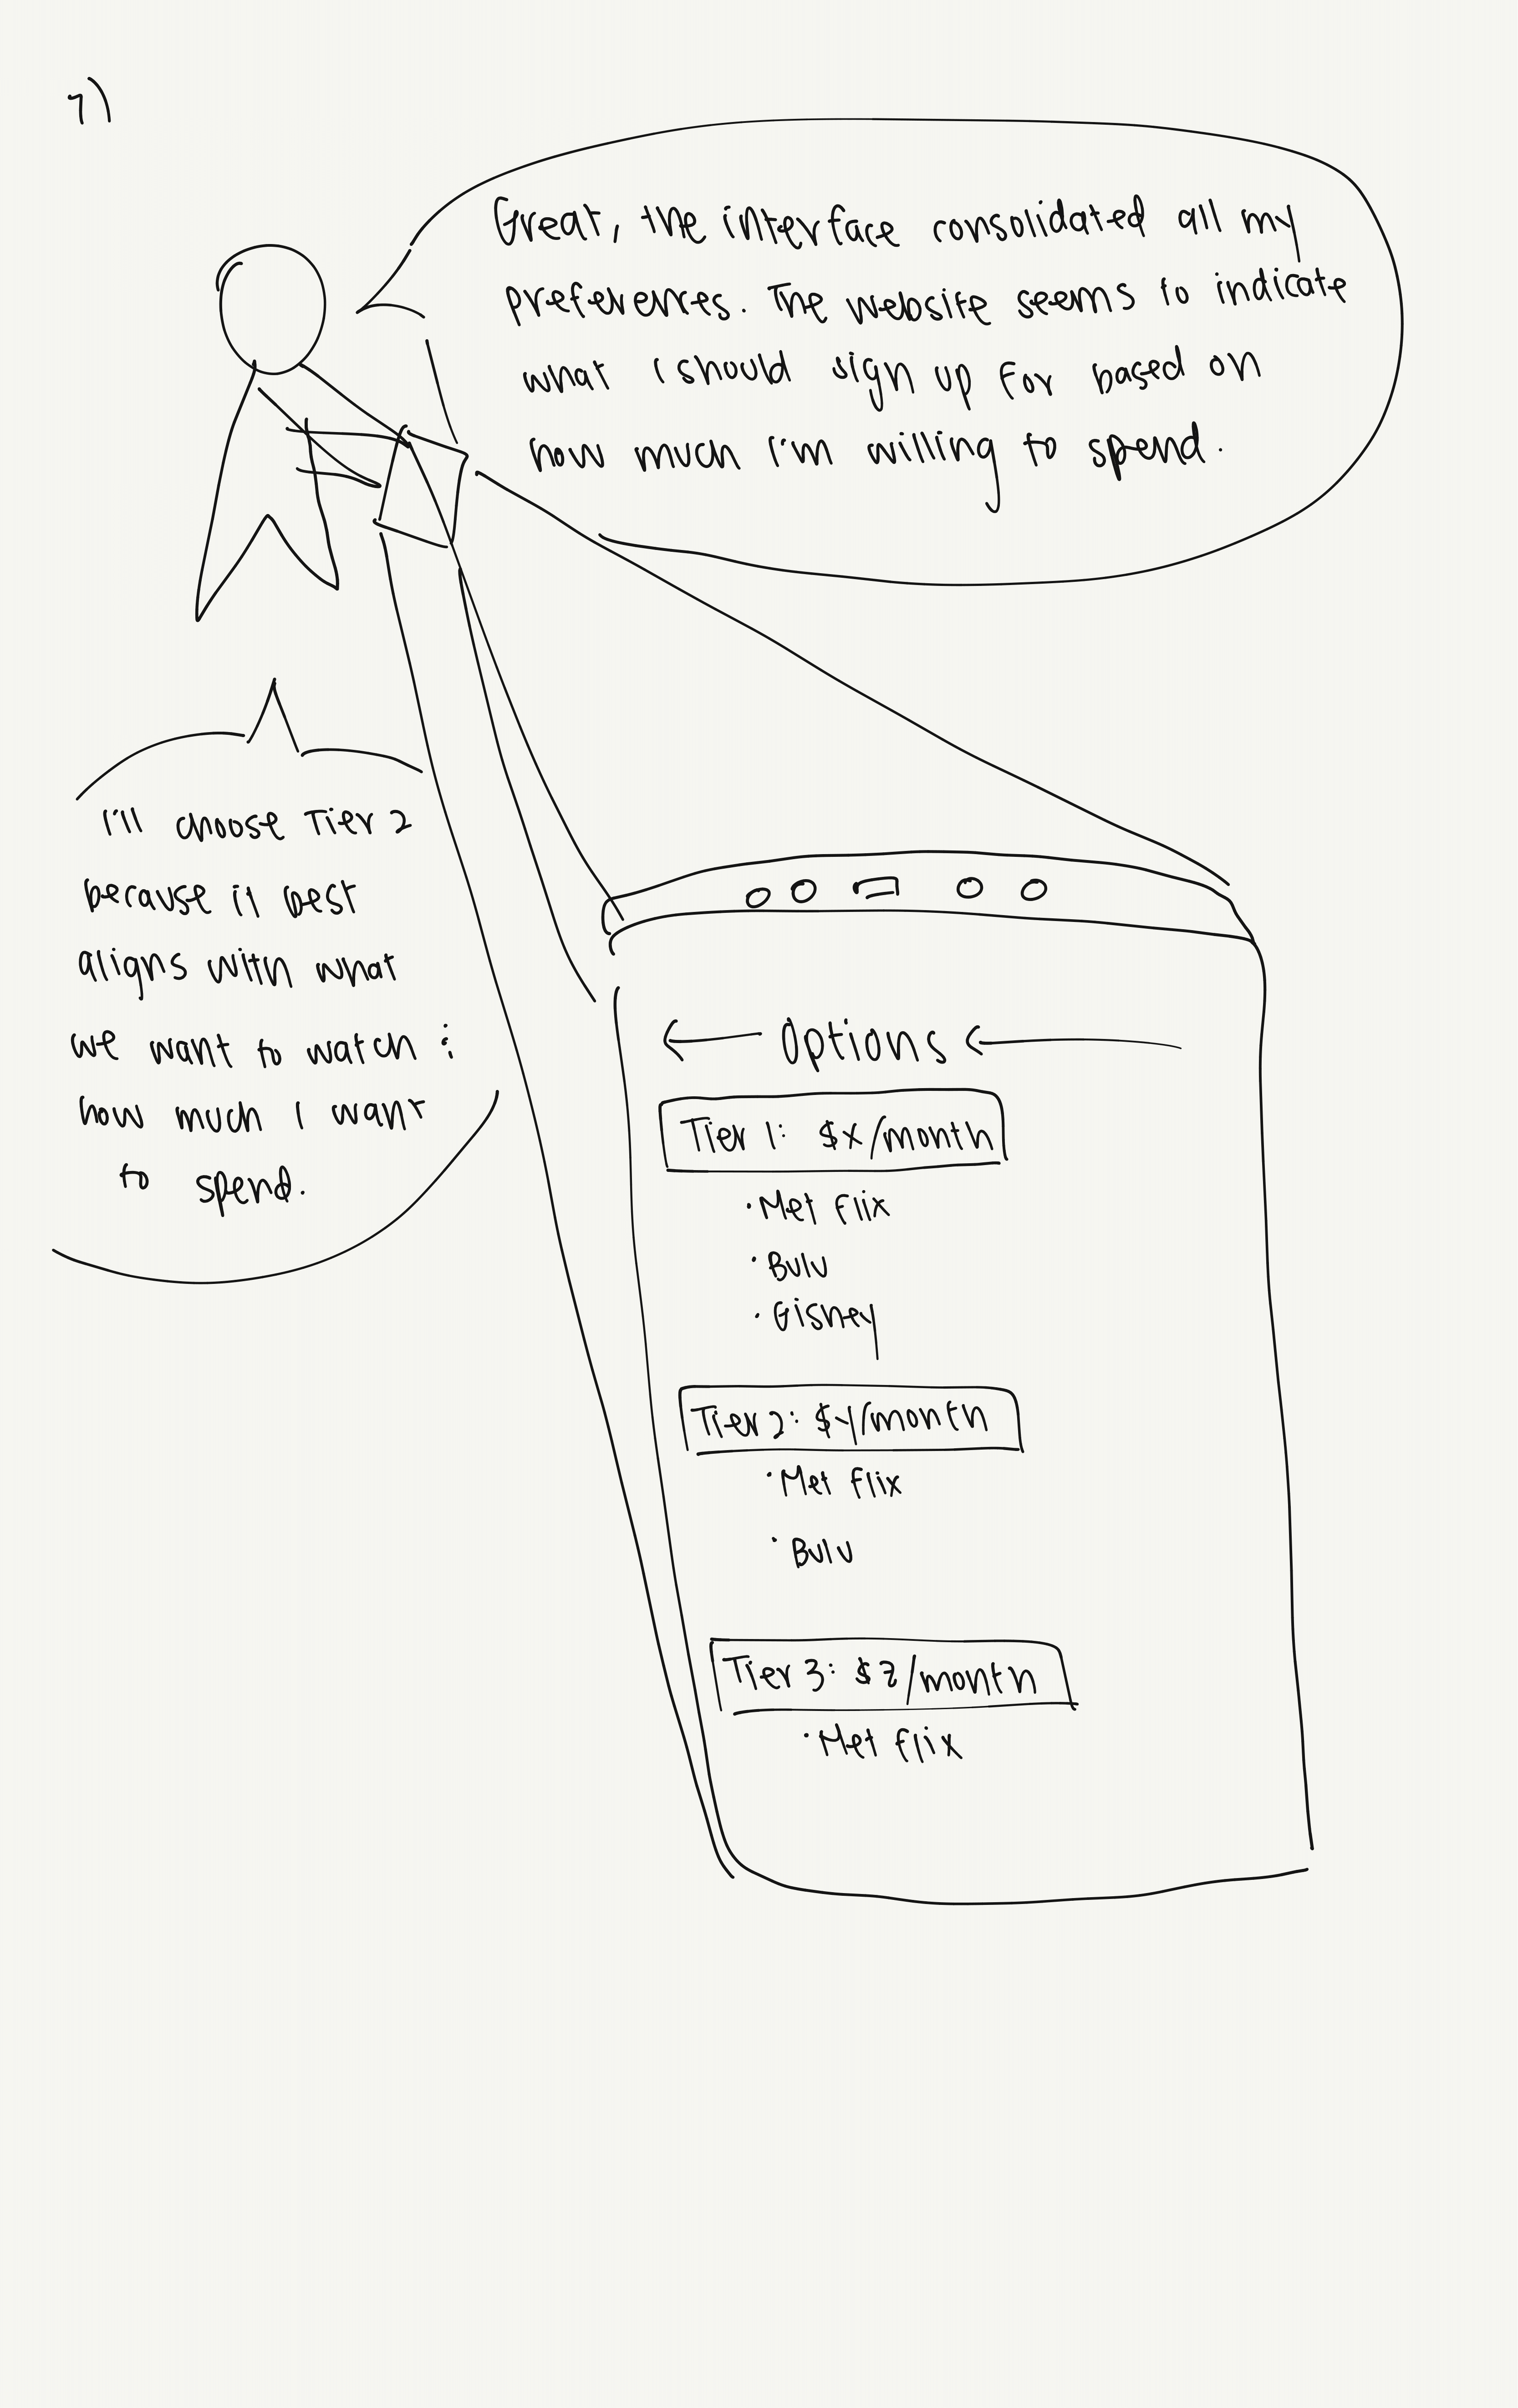 7)
Great, the interface consolidated all my
preferences. The website seems to indicate
what I should sign up for based on
how much I'm willing to spend.
I'll choose Tier 2
because it best
aligns with what
we want to watch &
how much I want
to spend.
Options
Tier 1: $x/month
• Met flix
• Bulu
• Gisney
Tier 2: $y/month
• Met flix
• Bulu
Tier 3: $z/month
• Met flix